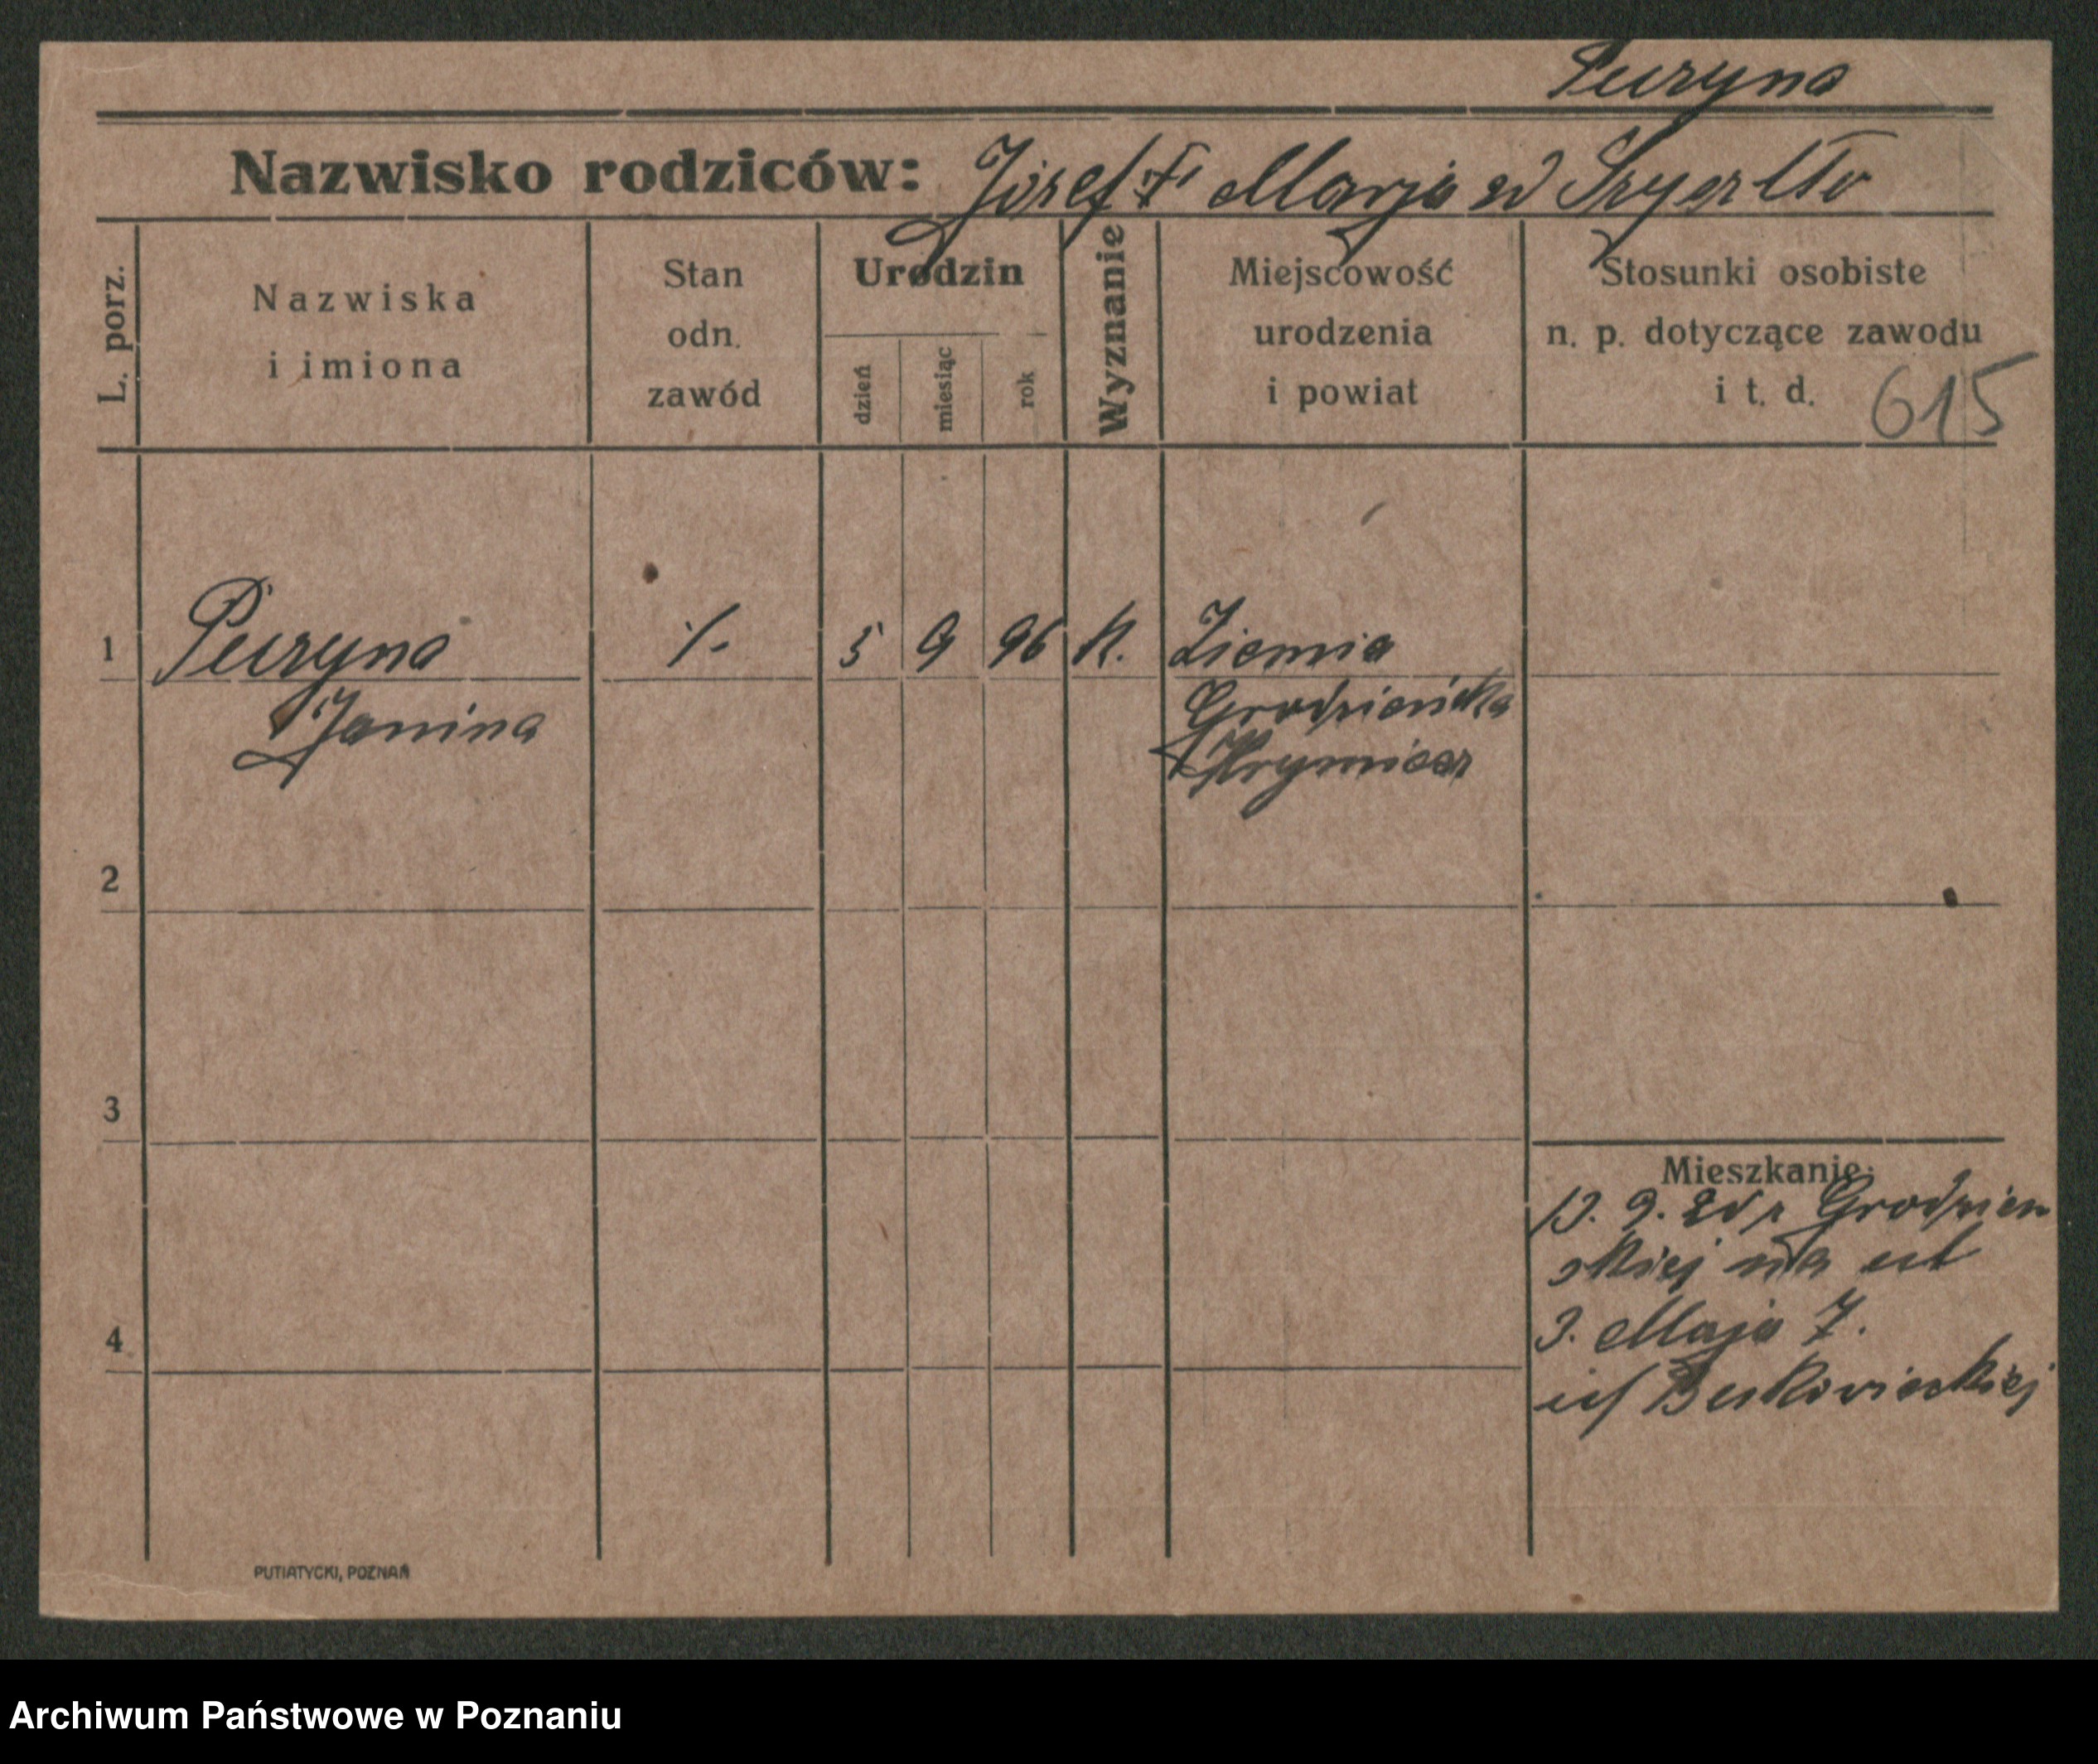 Puzyna
Nazwisko rodziców: Józef i Marja
L. porz.
Nazwiska
i imiona
Stan
odn.
zawód
Urodzin
dzień
miesiąc
rok
Wyznanie
Miejscowość
urodzenia
i powiat
Stosunki osobiste
n. p. dotyczące zawodu
i t. d. 615
1 Puzyna ·/- 5 9 96 K. Ziemia
Janina Grodzieńska
2
3
4
Mieszkanie:
13. 9. z Grodzień
skiej na ul
3. Maja 7.
PUTIATYCKI, POZNAŃ
Archiwum Państwowe w Poznaniu